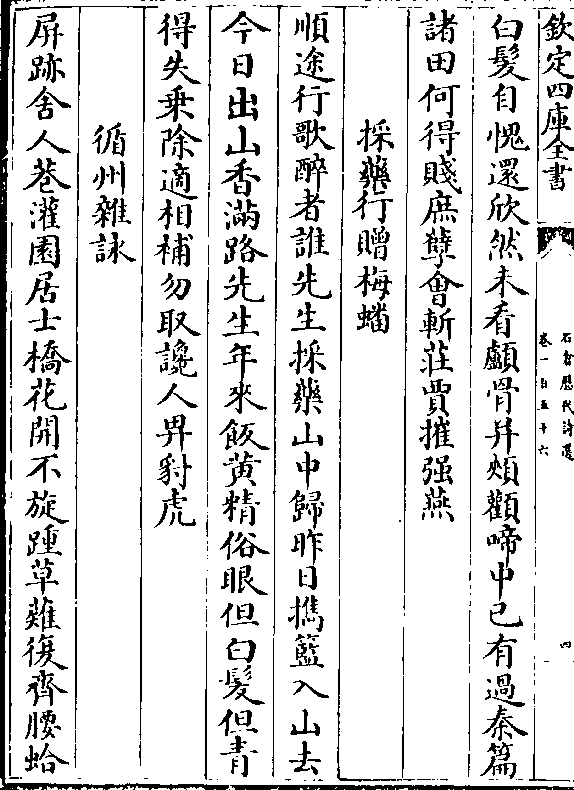 欽定四庫全書
石倉歷代詩選
卷一百五十六
四
白髮自愧還欣然未看顱骨并頰顴啼中已有過秦篇
諸田何得賤庶孽會斬莊賈摧强燕
採藥行贈梅蟠
順途行歌醉者誰先生採藥山中歸昨日擕籃入山去
今日出山香滿路先生年來飯黄精俗眼但白髮但青
得失乗除適相補勿取讒人畀豺虎
循州雜詠
屏跡舍人巷灌園居士橋花開不旋踵草薙復齊腰蛤